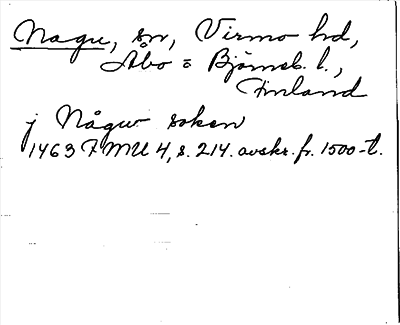 Nagu, sn, Virmo hd,
Åbo = Björneb. l.,
Finland
j Någw soken
1463 FMU 4, s. 214. avskr. fr. 1500-t.